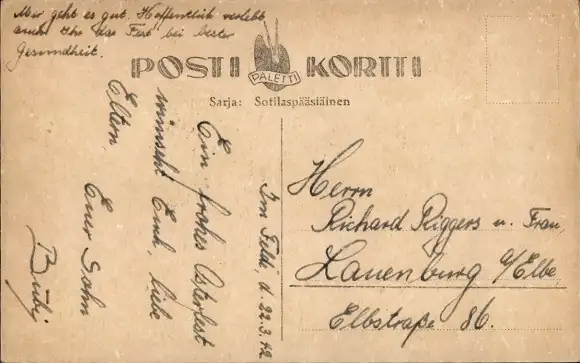 Mir geht es gut. Hoffentlich verlebt
auch Ihr das Fest bei bester
Gesundheit.
POSTI KORTTI
PALETTI
Sarja: Sotilaspääsiäinen
Im Felde, d. 22.3.42
Ein frohes Osterfest
wünscht Euch, liebe
Eltern
Euer Sohn
Bubi
Herrn
Richard Riggers u. Frau,
Lauenburg a/Elbe
Elbstraße 86.